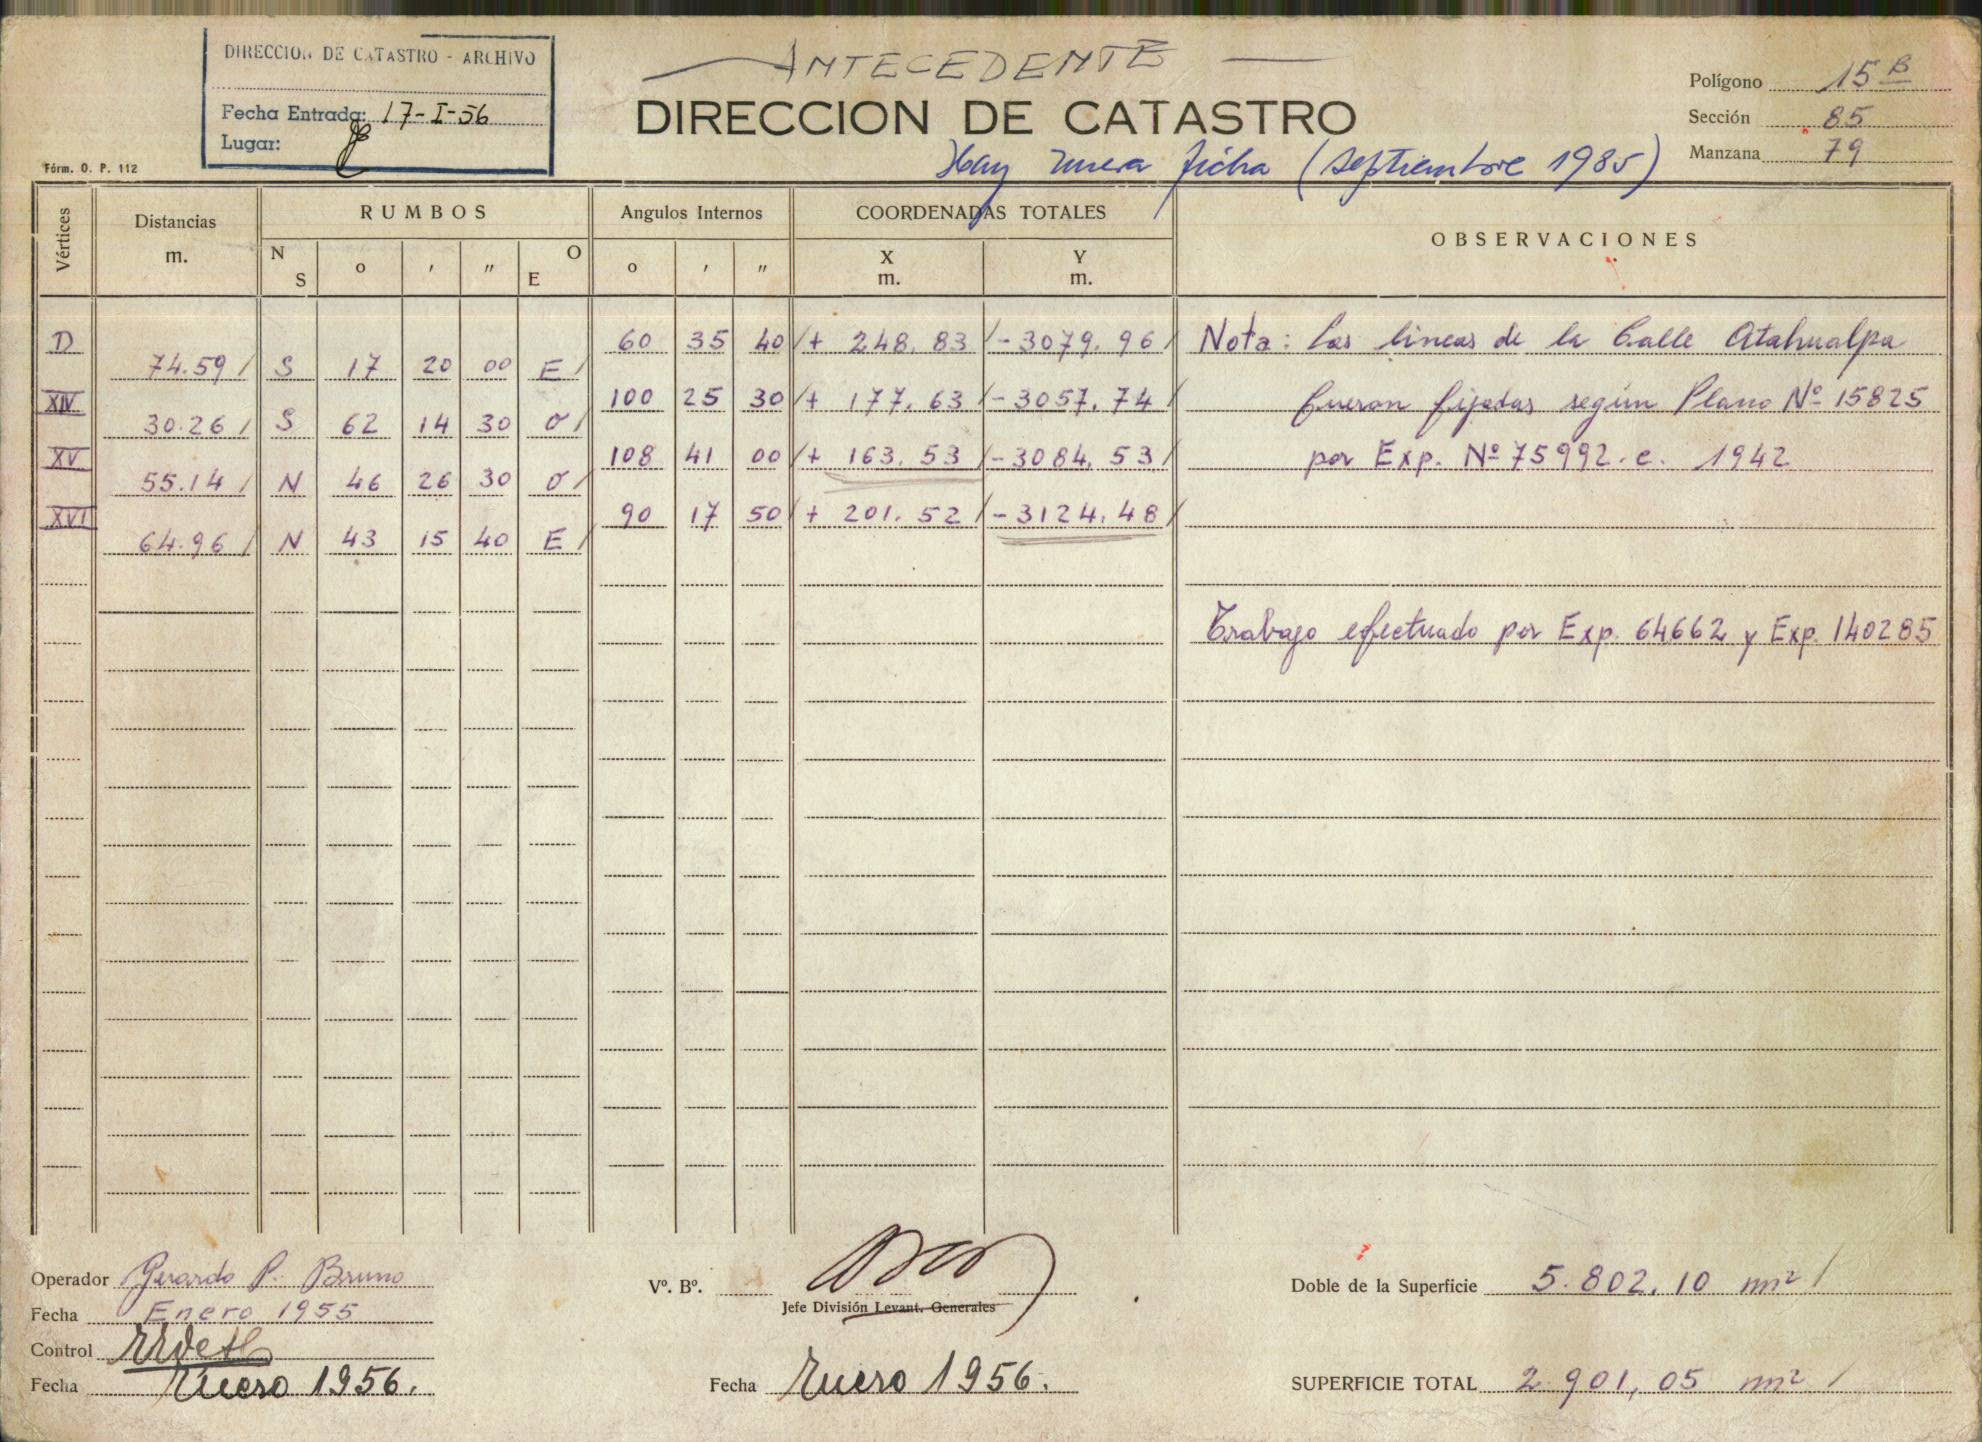 ANTECEDENTE
DIRECCION DE CATASTRO - ARCHIVO
Fecha Entrada: 17-I-56
Lugar:
Fórm. O. P. 112
DIRECCION DE CATASTRO
Hay nueva ficha (septiembre 1985)
Polígono 15 B
Sección 85
Manzana 79
Vértices Distancias m. RUMBOS Angulos Internos COORDENADAS TOTALES OBSERVACIONES
N S o ' " O E o ' " X m. Y m.
D 60 35 40 + 248.83 - 3079.96 Nota: Las líneas de la Calle Atahualpa
74.59 S 17 20 00 E
XIV 100 25 30 + 177.63 - 3057.74 fueron fijadas según Plano Nº 15825
30.26 S 62 14 30 O
XV 108 41 00 + 163.53 - 3084.53 por Exp. Nº 75992.e. 1942
55.14 N 46 26 30 O
XVI 90 17 50 + 201.52 - 3124.48
64.96 N 43 15 40 E
Trabajo efectuado por Exp. 64662 y Exp. 140285
Operador Gerardo P. Bruno
Fecha Enero 1955
Control
Fecha Enero 1956.
Vº. Bº.
Jefe División Levant. Generales
Fecha Enero 1956.
Doble de la Superficie 5.802.10 m2
SUPERFICIE TOTAL 2.901,05 m2